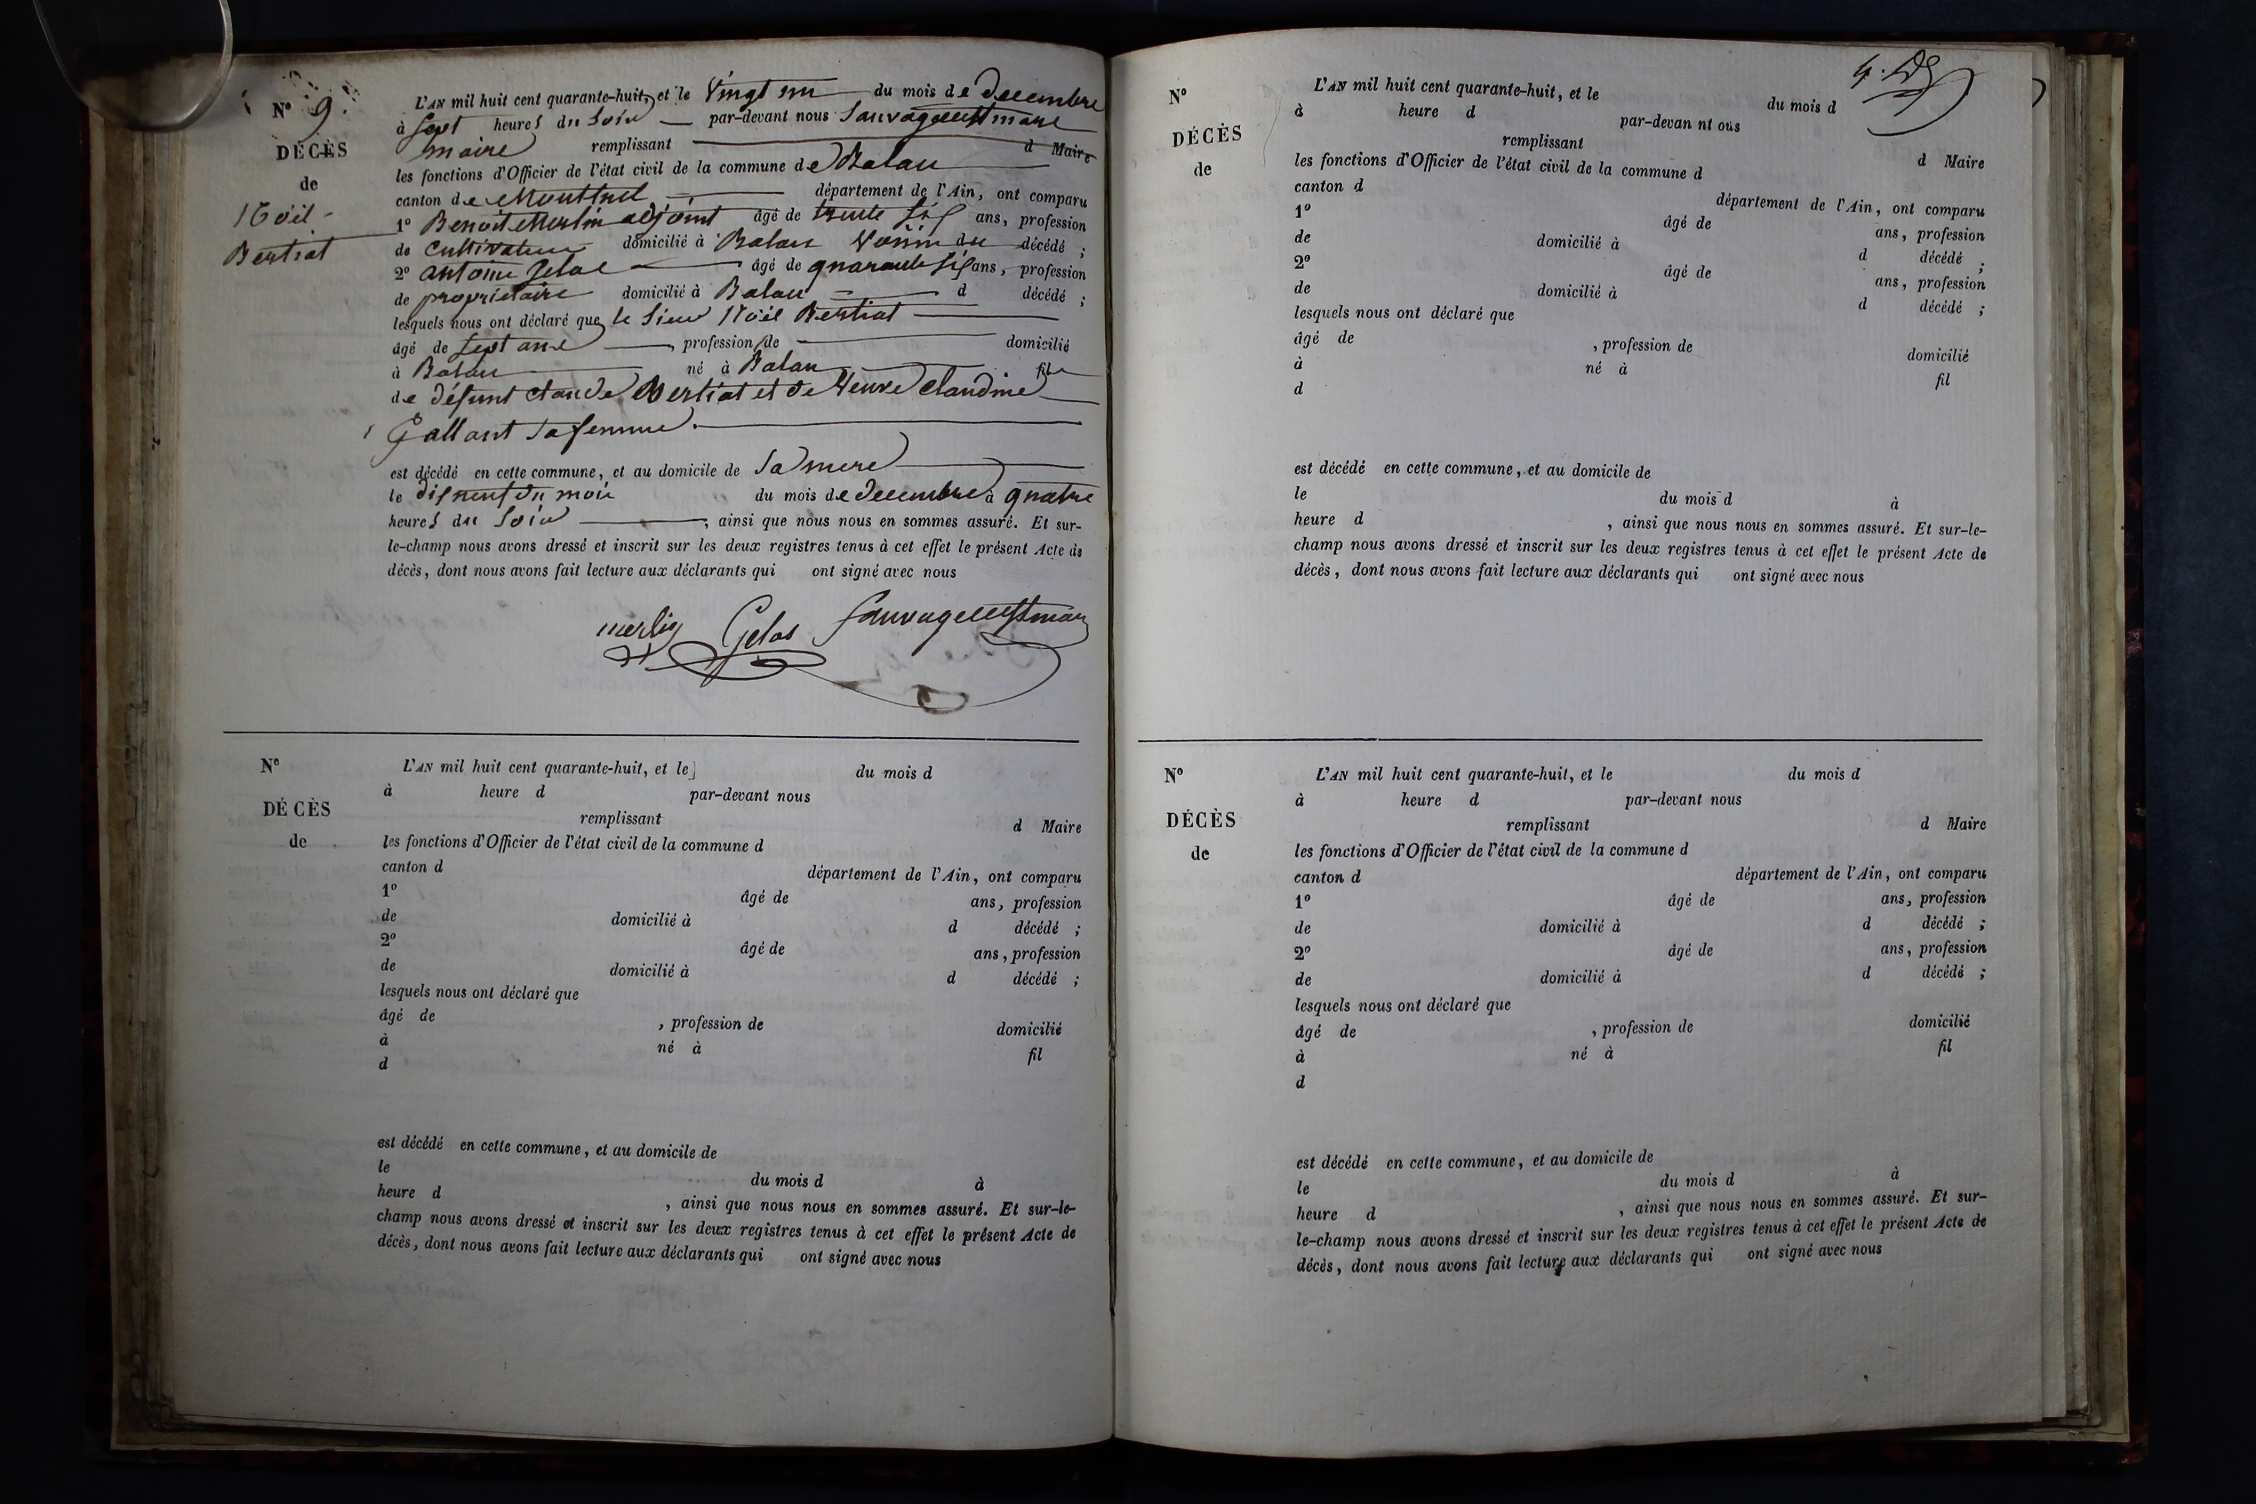 N° 9.
DÉCÈS
de
Noël
Bertiat
L'AN mil huit cent quarante-huit, et le Vingt un du mois de decembre
à sept heures du soir par-devant nous Sauvage
maire remplissant d Maire
les fonctions d'Officier de l'état civil de la commune de Balan
canton de Montluel département de l'Ain, ont comparu
1° Benoit Merlin adjoint âgé de trente six ans, profession
de cultivateur domicilié à Balan Voisin du décédé ;
2° antoine Gelas âgé de quarante six ans, profession
de propriétaire domicilié à Balan d décédé ;
lesquels nous ont déclaré que le sieur Noël Bertiat
âgé de sept ans , profession de domicilié
à Balan né à Balan fils
de défunt Claude Bertiat et de Veuve Claudine
Gallant sa femme.
est décédé en cette commune, et au domicile de sa mere
le dix neuf du mois du mois de decembre à quatre
heures du soir , ainsi que nous nous en sommes assuré. Et sur-
le-champ nous avons dressé et inscrit sur les deux registres tenus à cet effet le présent Acte de
décès, dont nous avons fait lecture aux déclarants qui ont signé avec nous
merlin Gelas
N°
DÉCÈS
de
L'AN mil huit cent quarante-huit, et le du mois d
à heure d par-devant nous
remplissant d Maire
les fonctions d'Officier de l'état civil de la commune d
canton d département de l'Ain, ont comparu
1° âgé de ans, profession
de domicilié à d décédé ;
2° âgé de ans, profession
de domicilié à d décédé ;
lesquels nous ont déclaré que
âgé de , profession de domicilié
à né à fil
d
est décédé en cette commune, et au domicile de
le du mois d à
heure d , ainsi que nous nous en sommes assuré. Et sur-le-
champ nous avons dressé et inscrit sur les deux registres tenus à cet effet le présent Acte de
décès, dont nous avons fait lecture aux déclarants qui ont signé avec nous
N°
DÉCÈS
de
L'AN mil huit cent quarante-huit, et le du mois d
à heure d par-devan nt ous
remplissant d Maire
les fonctions d'Officier de l'état civil de la commune d
canton d département de l'Ain, ont comparu
1° âgé de ans, profession
de domicilié à d décédé ;
2° âgé de ans, profession
de domicilié à d décédé ;
lesquels nous ont déclaré que
âgé de , profession de domicilié
à né à fil
d
est décédé en cette commune, et au domicile de
le du mois d à
heure d , ainsi que nous nous en sommes assuré. Et sur-le-
champ nous avons dressé et inscrit sur les deux registres tenus à cet effet le présent Acte de
décès, dont nous avons fait lecture aux déclarants qui ont signé avec nous
N°
DÉCÈS
de
L'AN mil huit cent quarante-huit, et le du mois d
à heure d par-devant nous
remplissant d Maire
les fonctions d'Officier de l'état civil de la commune d
canton d département de l'Ain, ont comparu
1° âgé de ans, profession
de domicilié à d décédé ;
2° âgé de ans, profession
de domicilié à d décédé ;
lesquels nous ont déclaré que
âgé de , profession de domicilié
à né à fil
d
est décédé en cette commune, et au domicile de
le du mois d à
heure d , ainsi que nous nous en sommes assuré. Et sur-
le-champ nous avons dressé et inscrit sur les deux registres tenus à cet effet le présent Acte de
décès, dont nous avons fait lecture aux déclarants qui ont signé avec nous